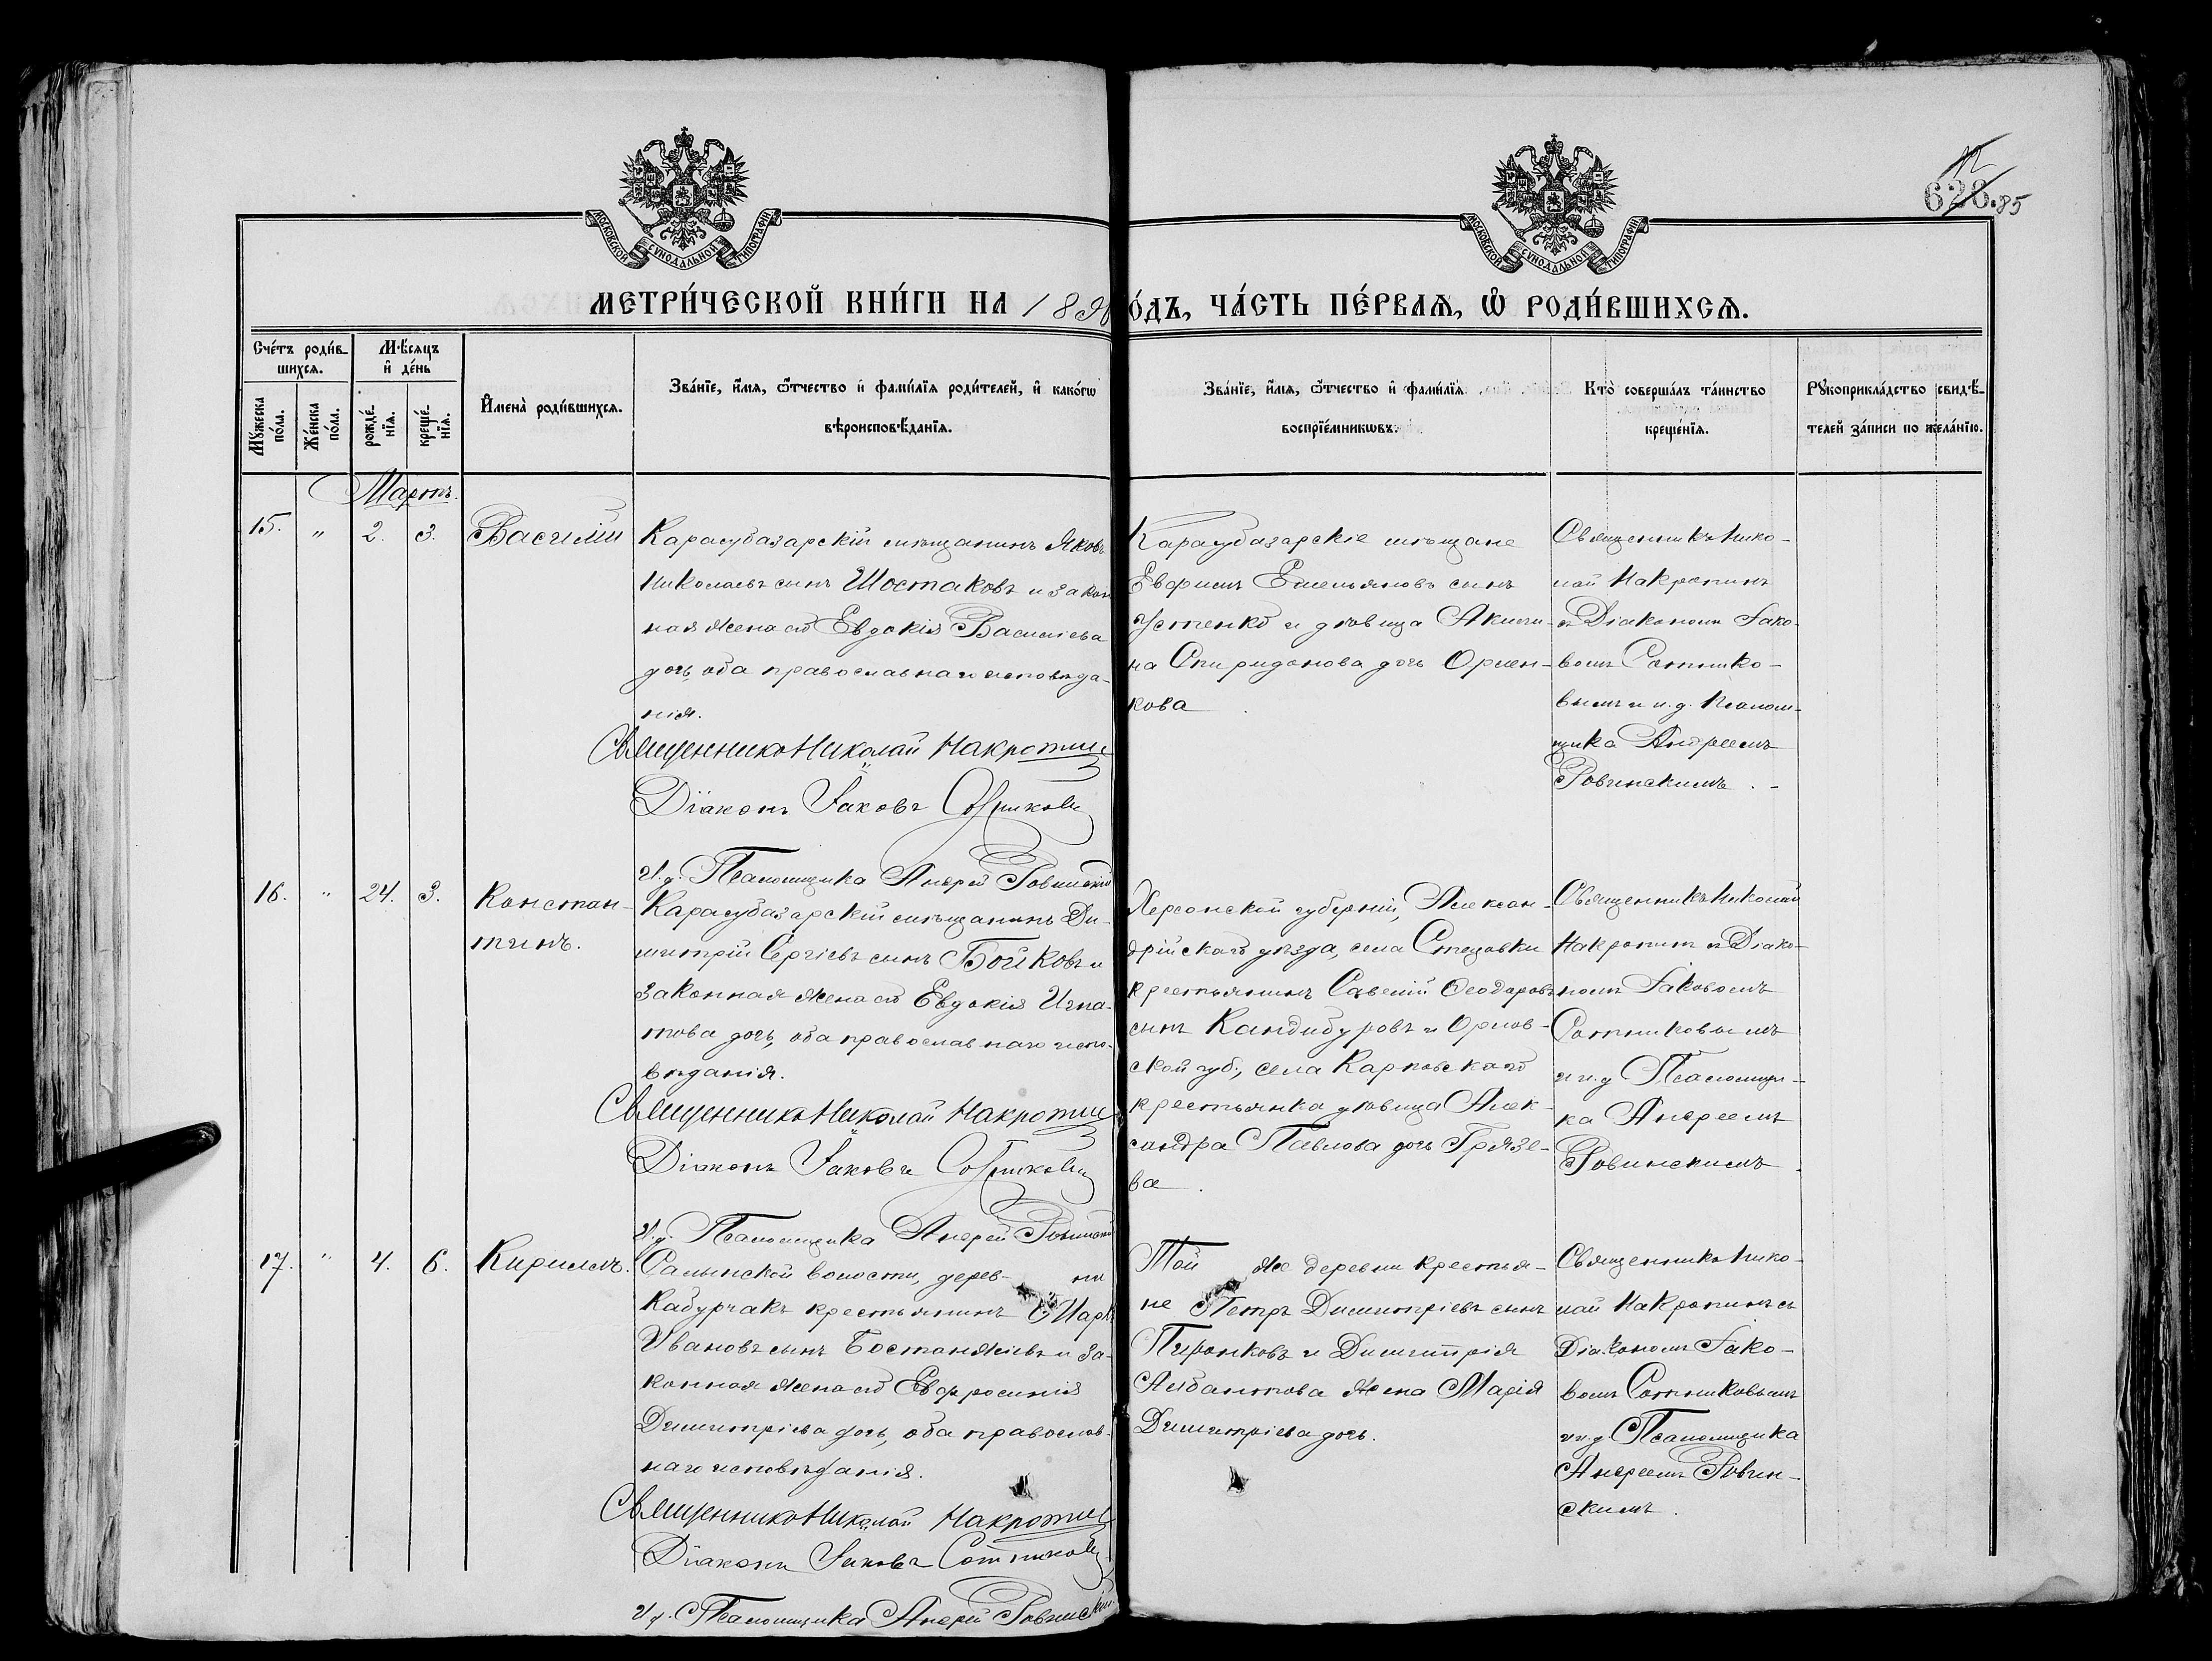 12
626.
85
МОСКОВСКОЙ СѴНОДАЛЬНОЙ ТИПОГРАФІИ
МОСКОВСКОЙ СѴНОДАЛЬНОЙ ТИПОГРАФІИ
МЕТРИ́ЧЕСКОЙ КНИ́ГИ НА 189
О́ДЪ, ЧА́СТЬ ПЕ́РВАѦ, Ѡ҆ РОДИ́ВШИХСѦ.
Сче́тъ роди́в-
шихсѧ.
Мꙋ́жеска по́ла.
Же́нска по́ла.
Мѣ́сѧцъ
и҆ де́нь
рожде́-
нїѧ.
креще́-
нїѧ.
И҆мена̀ роди́вшихсѧ.
Зва́нїе, и҆́мѧ, ѻ҆́тчество и҆ фами́лїѧ роди́телей, и҆ како́гѡ
вѣроисповѣ́данїѧ.
Зва́нїе, и҆́мѧ, ѻ҆́тчество и҆ фами́лїѧ
воспрїе́мникѡвъ.
Кто̀ соверша́лъ та́инство
креще́нїѧ.
Рꙋкоприкла́дство свидѣ́-
телей за́писи по жела́нїю.
Мартъ.
15. " 2. 3. Василій
Карасубазарскій мѣщанинъ Яковъ
Николаевъ сынъ Шостаковъ и закон
ная жена его Евдокія Василіева
дочь, оба православнаго исповѣда-
нія.
Священникъ Николай Накропин
Діаконъ Іаковъ Сотниковъ
И. д. Псаломщика Андрей Ровинскій
Карасубазарскіе мѣщане
Евфимъ Емельяновъ сынъ
Устенко и дѣвица Акили-
на Спиридонова дочь Орлен-
кова
Священникъ Нико-
лай Накропинъ
съ Діакономъ Іако-
вомъ Сотнико-
вымъ и и. д. Псалом-
щика Андреемъ
Ровинскимъ.
16. " 24. 3. Констан-
тинъ.
Карасубазарскій мѣщанинъ Ди-
митрій Сергіевъ сынъ Бойковъ и
законная жена его Евдокія Игна-
това дочь, оба православнаго испо-
вѣданія.
Священникъ Николай Накропин
Діаконъ Іаковъ Сотниковъ
И. д. Псаломщика Андрей Ровинскій
Херсонской губерніи, Алексан-
дрійскаго уѣзда, села Стецовки
крестьянинъ Савелій Ѳеодоровъ
сынъ Кандибуровъ и Орлов-
ской губ., села Карповскаго
крестьянка дѣвица Алек-
сандра Павлова дочь Грязе-
ва.
Священникъ Николай
Накропин съ Діако-
номъ Іаковомъ
Сотниковымъ
и и. д. Псаломщи-
ка Андреемъ
Ровинскимъ.
17. " 4. 6. Кириллъ.
Салынской волости, дерев- ни
Кабурчакъ крестьянинъ
Ивановъ сынъ Бостанжіевъ и за-
конная жена его Евфросинія
Димитріева дочь, оба православ-
наго исповѣданія.
Священникъ Николай Накропин
Діаконъ Іаковъ Сотниковъ
И. д. Псаломщика Андрей Ровинскій
Той же деревни крестья-
не Петръ Димитріевъ сынъ
Пиронковъ и Димитрія
Албантова жена Марія
Димитріева дочь.
Священникъ Нико-
лай Накропинъ съ
Діакономъ Іако-
вомъ Сотниковымъ
и и. д. Псаломщика
Андреемъ Ровин-
скимъ.